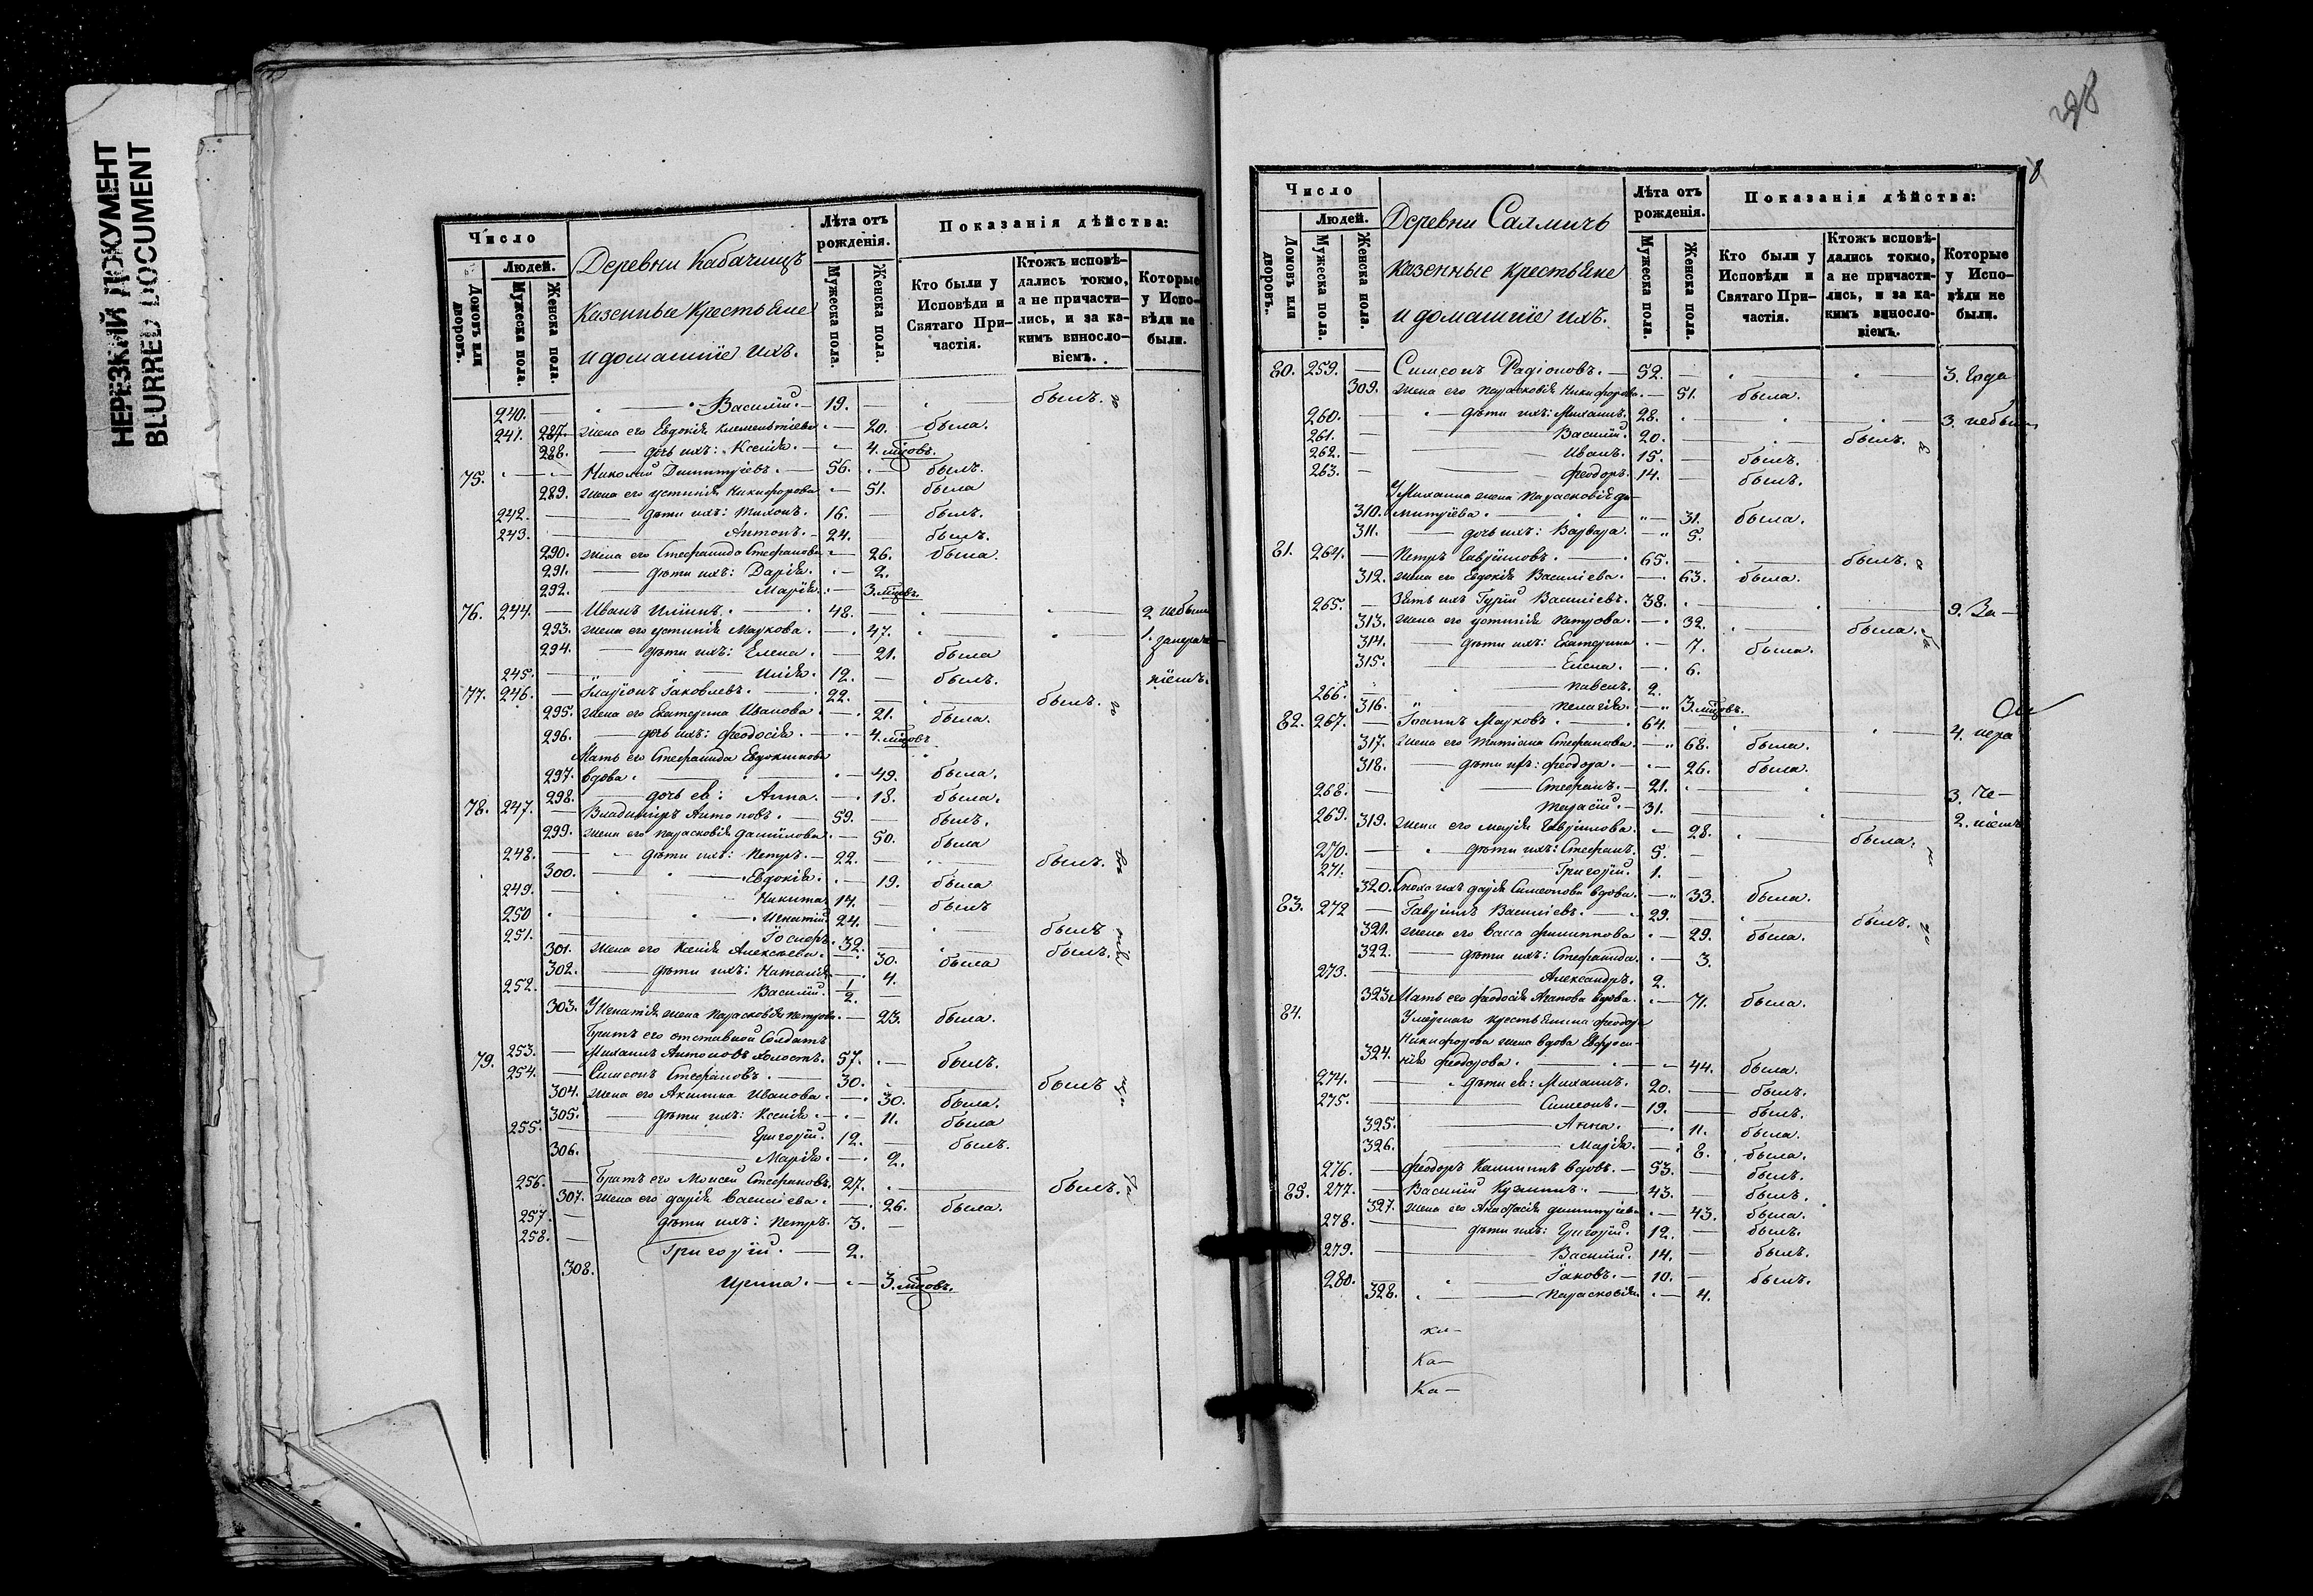 НЕРЕЗКИЙ ДОКУМЕНТ
BLURRED DOCUMENT
Число
Людей.
Домовъ или дворовъ.
Мужеска пола.
Женска пола.
Деревни Кабачищъ
казенные крестьяне
и домашніе ихъ.
Лѣта отъ рожденія.
Мужеска пола.
Женска пола.
Показанія дѣйства:
Кто были у Исповѣди и Святаго Причастія.
Ктожъ исповѣдались токмо, а не причастились, и за какимъ винословіемъ.
Которые у Исповѣди не были.
240. — Василій. — 19. — былъ.
241. 287. жена его Евдокія Климентіева — 20. была.
288. — дочь ихъ: Ксенія. — 4. мѣсяцовъ.
75. Николай Димитріевъ. — 56. былъ.
289. жена его Устинія Никифорова — 51. была
242. — дѣти ихъ: Тихонъ. 16. — былъ.
243. — Антонъ. — 24. былъ.
290. жена его Стефанида Стефанова — 26. была.
291. — дѣти ихъ: Дарія. — 2.
292. — Марія. — 3. мѣсяцъ.
76. 244. — Иванъ Ильинъ. — 48. — 2 небылъ
293. жена его Устинія Маркова. — 47. — 1.
294. — дѣти ихъ: Елена. — 21. была
245. — Илія. 12. — былъ. ніемъ.
77. 246. — Иларіонъ Іаковлевъ. — 22. — былъ.
295. жена его Екатерина Иванова — 21. была.
296. — дочь ихъ: Феодосія. — 4. мѣсяцовъ
Мать его Стефанида Евдокимова
297. вдова. — 49. была.
298. — дочь ея: Анна. — 18. была.
78. 247. — Владиміръ Антоновъ. — 59. — былъ.
299. жена его Парасковія Даниилова. — 50. была
248. — дѣти ихъ: Петръ. — 22. — былъ.
300. — Евдокія. — 19. была
249. — Никита 14. — былъ
250 — Игнатій 24. — былъ
251. — Іосифъ. 32. — былъ.
301. жена его Ксенія Алексѣева. — 30. была
302. — дѣти ихъ: Наталія — 4.
252. — Василій. 1/2. —
303. У Игнатія жена Парасковія Петрова. — 23. была.
Братъ его отставной Солдатъ
253. — Михаилъ Антоновъ холостъ. 57. — былъ.
79. 254. — Симеонъ Стефановъ. — 30. — былъ
304. жена его Акилина Иванова. — 30. была.
305. — дѣти ихъ: Ксенія. — 11. была
255. — Григорій. 12. — былъ.
306. — Марія. — 2.
256. — Братъ его Моисей Стефановъ. 27. — былъ.
307. жена его Дарія Василіева. — 26. была.
257. — дѣти ихъ: Петръ. 3. —
258. — Григорій. — 2.
308. Ирина. — 3. мѣсяцовъ.
298
8
Число
Людей.
Домовъ или дворовъ.
Мужеска пола.
Женска пола.
Деревни Салмичъ
казенные крестьяне
и домашніе ихъ.
Лѣта отъ рожденія.
Мужеска пола.
Женска пола.
Показанія дѣйства:
Кто были у Исповѣди и Святаго Причастія.
Ктожъ исповѣдались токмо, а не причастились, и за какимъ винословіемъ.
Которые у Исповѣди не были.
80. 259. — Симеонъ Радіоновъ. — 52. — 3. года
309. жена его Парасковія Никифорова. — 51. была.
260. — дѣти ихъ: Михаилъ. 28. — 3. небылъ
261. — Василій. 20. — былъ.
262. — Иванъ. 15. — былъ.
263. — Феодоръ. 14. — былъ.
У Михаила жена Парасковія Ди-
310. митріева. — 31. была.
311. — дочь ихъ: Варвара. — 5.
81. 264. — Петръ Гавріиловъ. — 65. — былъ.
312. жена его Евдокія Василіева. — 63. была.
265. — Зять ихъ Гурій Василіевъ. 38. — 9. За —
313. жена его Устинія Петрова. — 32. — была.
314. — дѣти ихъ: Екатерина — 7. была.
315. — Елена. — 6.
266. — Павелъ. 2.
316. — Пелагія. — 3. мѣсяцовъ.
82. 267. — Іоаннъ Марковъ. — 64. — 4. нера
317. жена его Татіана Стефанова. — 68. была.
318. — дѣти ихъ: Феодора. — 26. была.
268. — Стефанъ. — 21. — 3. че —
269. — Тарасій. — 31. — 2. ніемъ
319. жена его Марія Гавріилова. — 28. — была.
270. — дѣти ихъ: Стефанъ. 5. —
271. — Григорій. 1. —
320. Сноха ихъ Дарія Симеонова вдова. — 33. была.
83. 272 — Гавріилъ Василіевъ. — 29. — былъ.
321. жена его Васса Филиппова — 29. была.
322. — дѣти ихъ: Стефанида. — 3.
273. — Александръ. 2.
323. Мать его Феодосія Агапова вдова. — 71. была.
84. Умершаго крестьянина Феодора
Никифорова жена вдова Евфроси-
324. нія Феодорова. — 44. была.
274. — дѣти ея: Михаилъ. 20. — былъ.
275. — Симеонъ. — 19. — былъ.
325. — Анна. — 11. была.
326. — Марія. — 8. была.
276. — Феодоръ Калининъ вдовъ. — 53. — былъ.
85. 277. — Василій Кузминъ. — 43. — былъ.
327. жена его Анастасія Димитріева — 43. была.
278. — дѣти ихъ: Григорій. 12. — былъ.
279. — Василій. 14. — былъ.
280. — Іаковъ. — 10. — былъ.
328. — Парасковія. — 4.
ки—
Ка—
Ка—